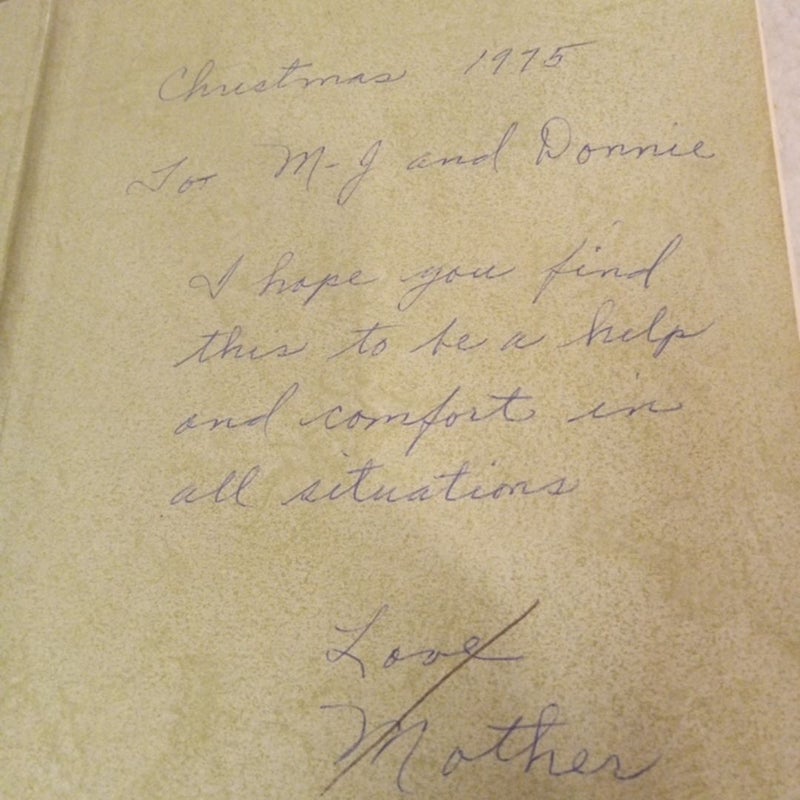 Christmas 1975
To M-J and Donnie
I hope you find
this to be a help
and comfort in
all situations
Love
Mother